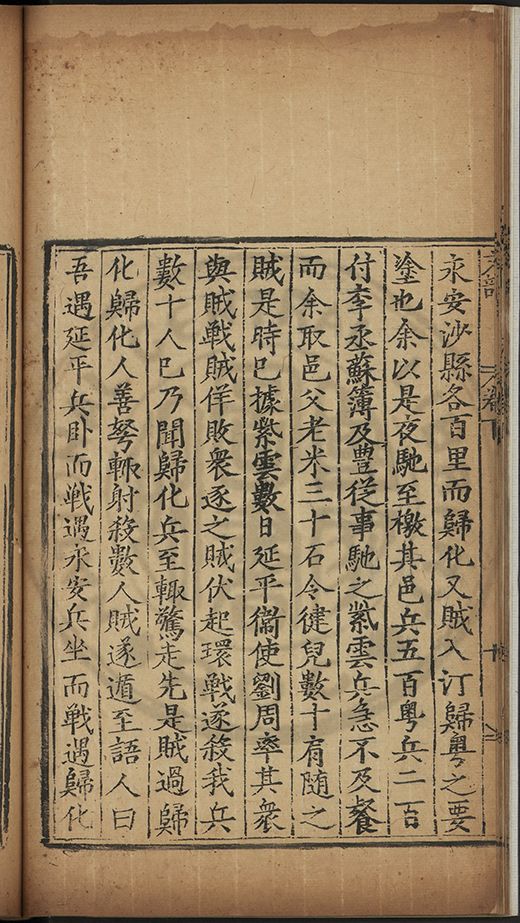 永安沙縣各百里而歸化又賊入汀歸粤之要
塗也余以是夜馳至檄其邑兵五百粤兵二百
付李丞蘇簿及豊從事馳之紫雲兵急不及餐
而余取邑父老米三十石令健兒數十有隨之
賊是時已據紫雲數日延平衞使劉周率其衆
與賊戰賊佯敗衆逐之賊伏起環戰遂殺我兵
數十人已乃聞歸化兵至輙驚走先是賊過歸
化歸化人善弩輙射殺數人賊遂遁至語人曰
吾遇延平兵卧而戰遇永安兵坐而戰遇歸化